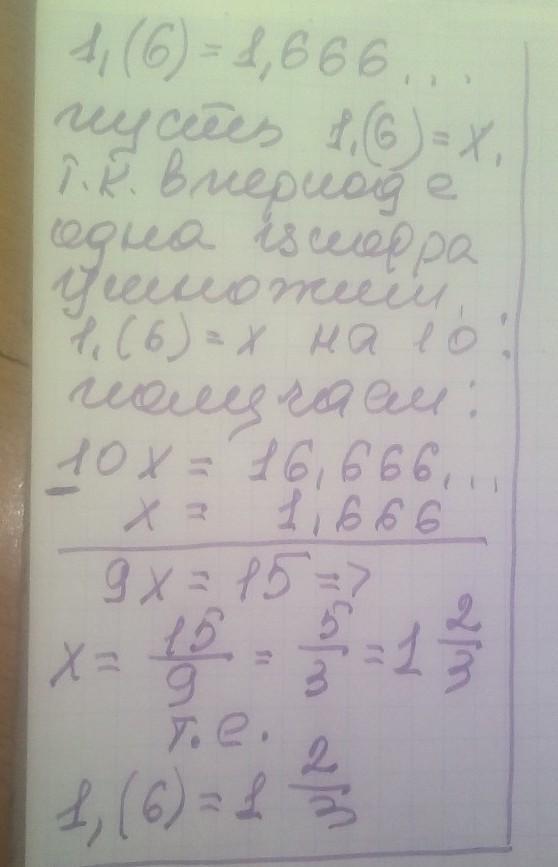 1,(6)=1,666...
пусть 1,(6)=x.
т.к. в периоде
одна цифра
умножим
1,(6)=x на 10:
получаем:
10x = 16,666...
- x = 1,666
9x = 15 =>
x = 15/9 = 5/3 = 1 2/3
т.е.
1,(6) = 1 2/3